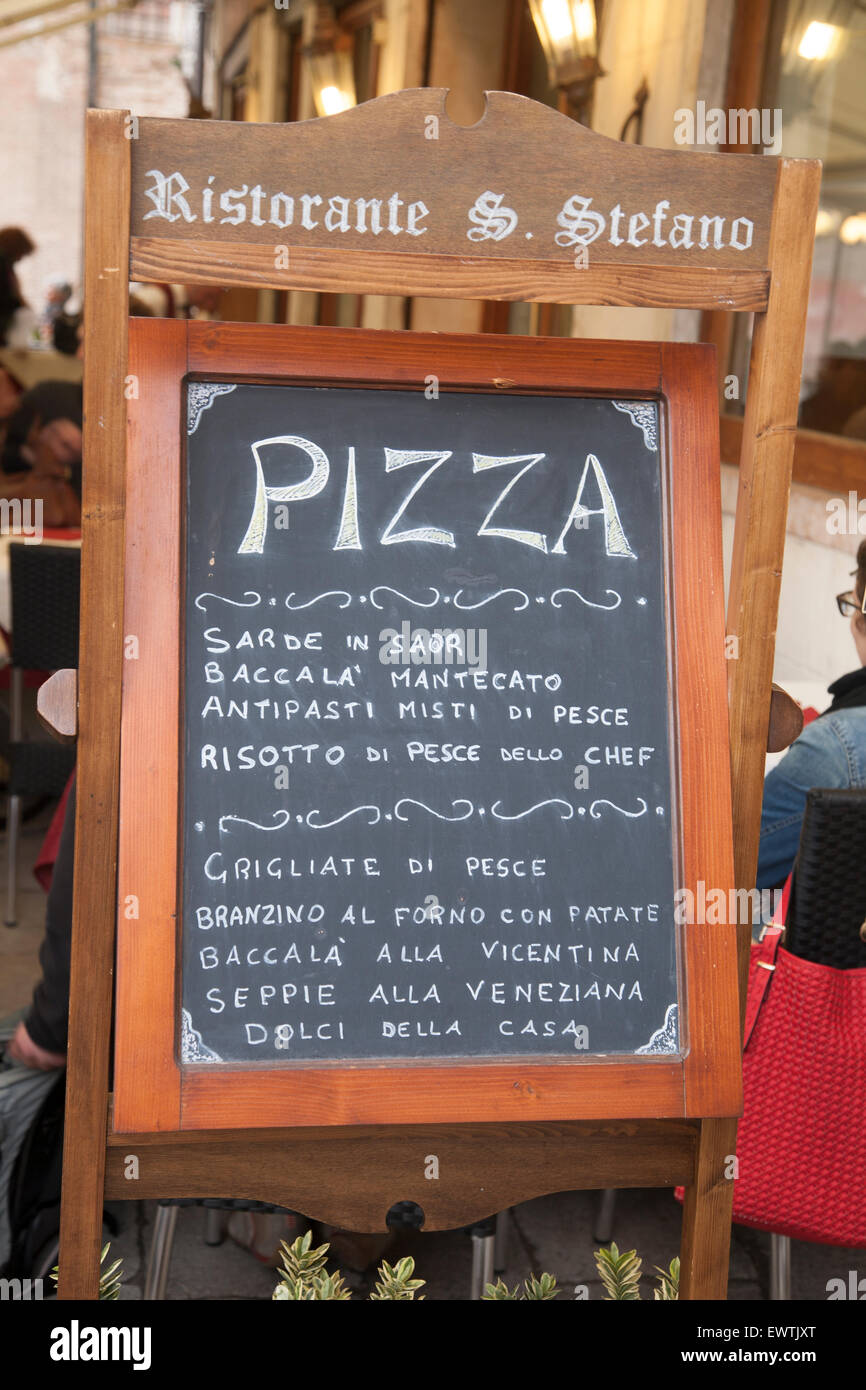 Ristorante S. Stefano
PIZZA
SARDE IN SAOR
BACCALA' MANTECATO
ANTIPASTI MISTI DI PESCE
RISOTTO DI PESCE DELLO CHEF
GRIGLIATE DI PESCE
BRANZINO AL FORNO CON PATATE
BACCALÀ ALLA VICENTINA
SEPPIE ALLA VENEZIANA
DOLCI DELLA CASA
alamy stock photo
EWTJXT
www.alamy.com